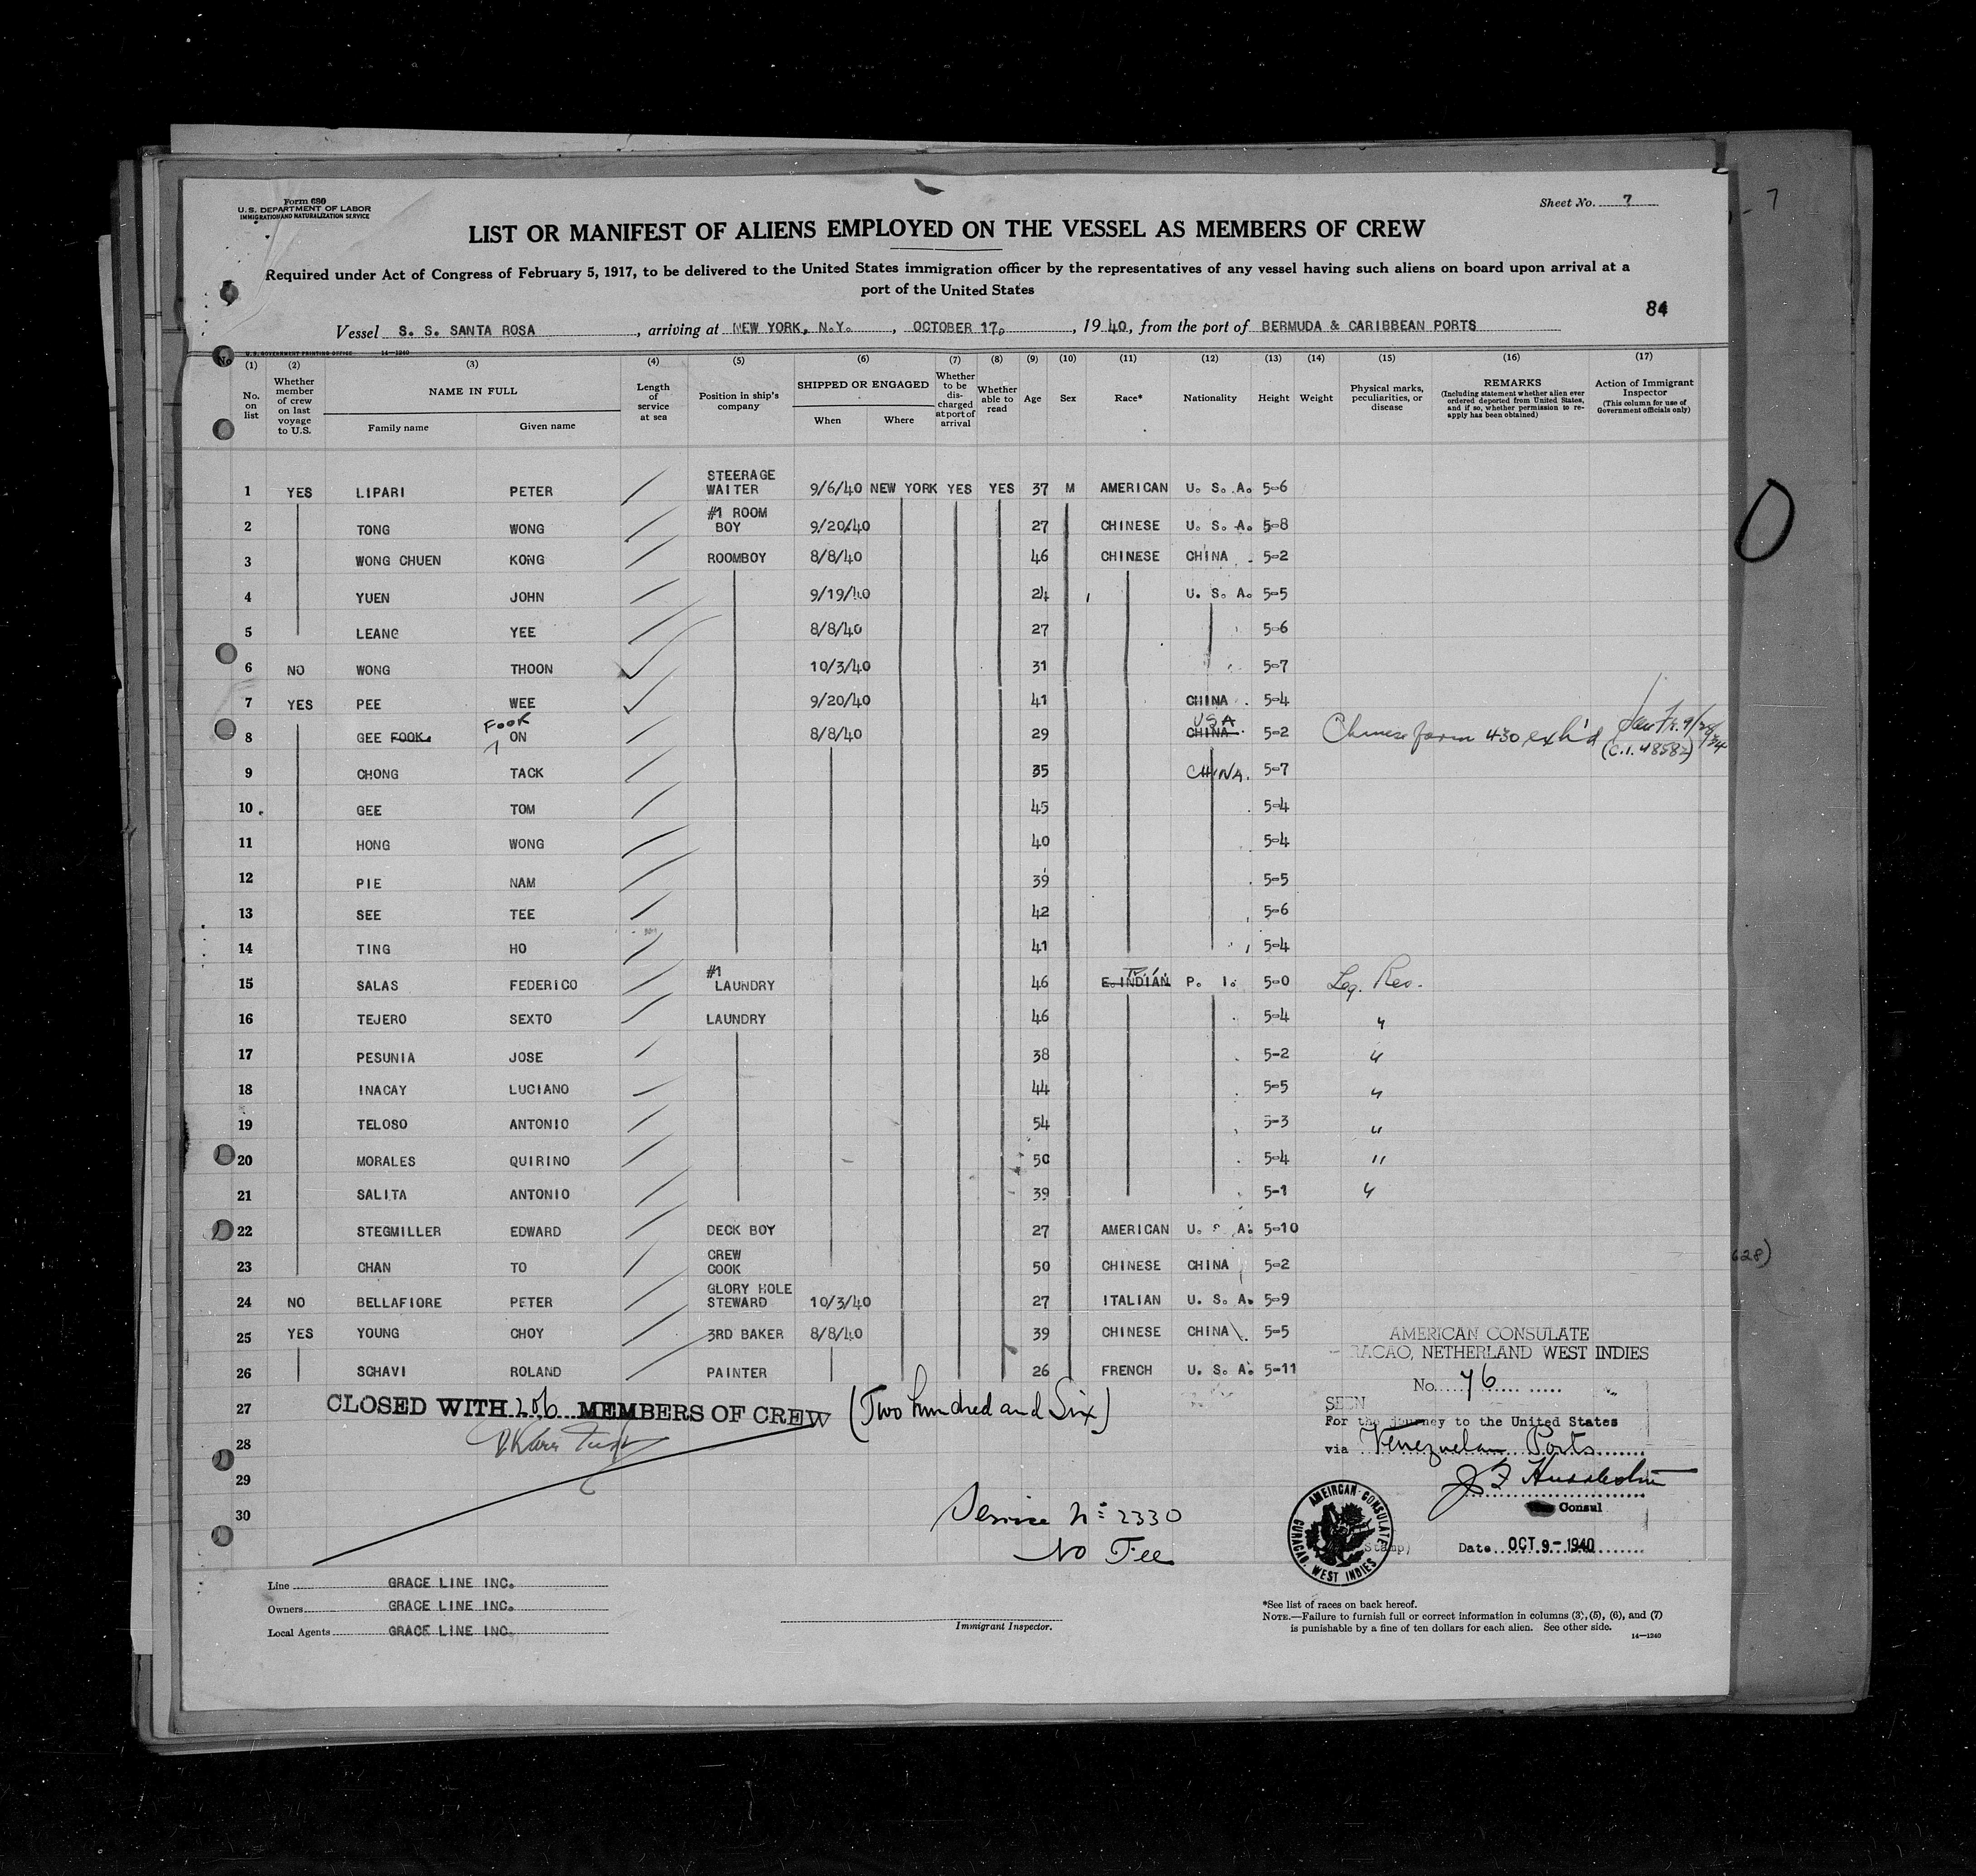 Form 680
U.S. DEPARTMENT OF LABOR
IMMIGRATION AND NATURALIZATION SERVICE
Sheet No. 7
7
LIST OR MANIFEST OF ALIENS EMPLOYED ON THE VESSEL AS MEMBERS OF CREW
Required under Act of Congress of February 5, 1917, to be delivered to the United States immigration officer by the representatives of any vessel having such aliens on board upon arrival at a
port of the United States
84
Vessel S. S. SANTA ROSA, arriving at NEW YORK, N.Y., OCTOBER 17, 1940, from the port of BERMUDA & CARIBBEAN PORTS
U.S. GOVERNMENT PRINTING OFFICE 14—1240
(1) (2) (3) (4) (5) (6) (7) (8) (9) (10) (11) (12) (13) (14) (15) (16) (17)
No. on list
Whether member of crew on last voyage to U.S.
NAME IN FULL
Family name Given name
Length of service at sea
Position in ship's company
SHIPPED OR ENGAGED
When Where
Whether to be discharged at port of arrival
Whether able to read
Age
Sex
Race*
Nationality
Height
Weight
Physical marks, peculiarities, or disease
REMARKS
(Including statement whether alien ever ordered deported from United States, and if so, whether permission to reapply has been obtained)
Action of Immigrant Inspector
(This column for use of Government officials only)
1 YES LIPARI PETER STEERAGE WAITER 9/6/40 NEW YORK YES YES 37 M AMERICAN U. S. A. 5-6
2 TONG WONG #1 ROOM BOY 9/20/40 27 CHINESE U. S. A. 5-8
3 WONG CHUEN KONG ROOMBOY 8/8/40 46 CHINESE CHINA 5-2
4 YUEN JOHN 9/19/40 24 U. S. A. 5-5
5 LEANG YEE 8/8/40 27 5-6
6 NO WONG THOON 10/3/40 31 5-7
7 YES PEE WEE 9/20/40 41 CHINA 5-4
8 GEE FOOK FOOK ON 8/8/40 29 CHINA USA 5-2 Chinese form 430 exh'd San Fr. 9/28/34 (C.I. 48582)
9 CHONG TACK 35 CHINA. 5-7
10 GEE TOM 45 5-4
11 HONG WONG 40 5-4
12 PIE NAM 39 5-5
13 SEE TEE 42 5-6
14 TING HO 41 5-4
15 SALAS FEDERICO #1 LAUNDRY 46 E. INDIAN P. I. P. I. 5-0 Leg. Res.
16 TEJERO SEXTO LAUNDRY 46 5-4 "
17 PESUNIA JOSE 38 5-2 "
18 INACAY LUCIANO 44 5-5 "
19 TELOSO ANTONIO 54 5-3 "
20 MORALES QUIRINO 50 5-4 "
21 SALITA ANTONIO 39 5-1 "
22 STEGMILLER EDWARD DECK BOY 27 AMERICAN U. S. A. 5-10
23 CHAN TO CREW COOK 50 CHINESE CHINA 5-2
24 NO BELLAFIORE PETER GLORY HOLE STEWARD 10/3/40 27 ITALIAN U. S. A. 5-9
25 YES YOUNG CHOY 3RD BAKER 8/8/40 39 CHINESE CHINA 5-5
26 SCHAVI ROLAND PAINTER 26 FRENCH U. S. A. 5-11
27 CLOSED WITH 206 MEMBERS OF CREW (Two hundred and Six)
28
29
30
628)
AMERICAN CONSULATE
RACAO, NETHERLAND WEST INDIES
No. 76
SEEN
For the journey to the United States
via Venezuelan Ports
Consul
Date OCT 9 - 1940
AMERICAN CONSULATE
CURACAO, WEST INDIES
Service No 2330
No Fee
Line GRACE LINE INC.
Owners GRACE LINE INC.
Local Agents GRACE LINE INC.
Immigrant Inspector.
*See list of races on back hereof.
NOTE.—Failure to furnish full or correct information in columns (3), (5), (6), and (7)
is punishable by a fine of ten dollars for each alien. See other side.
14—1240